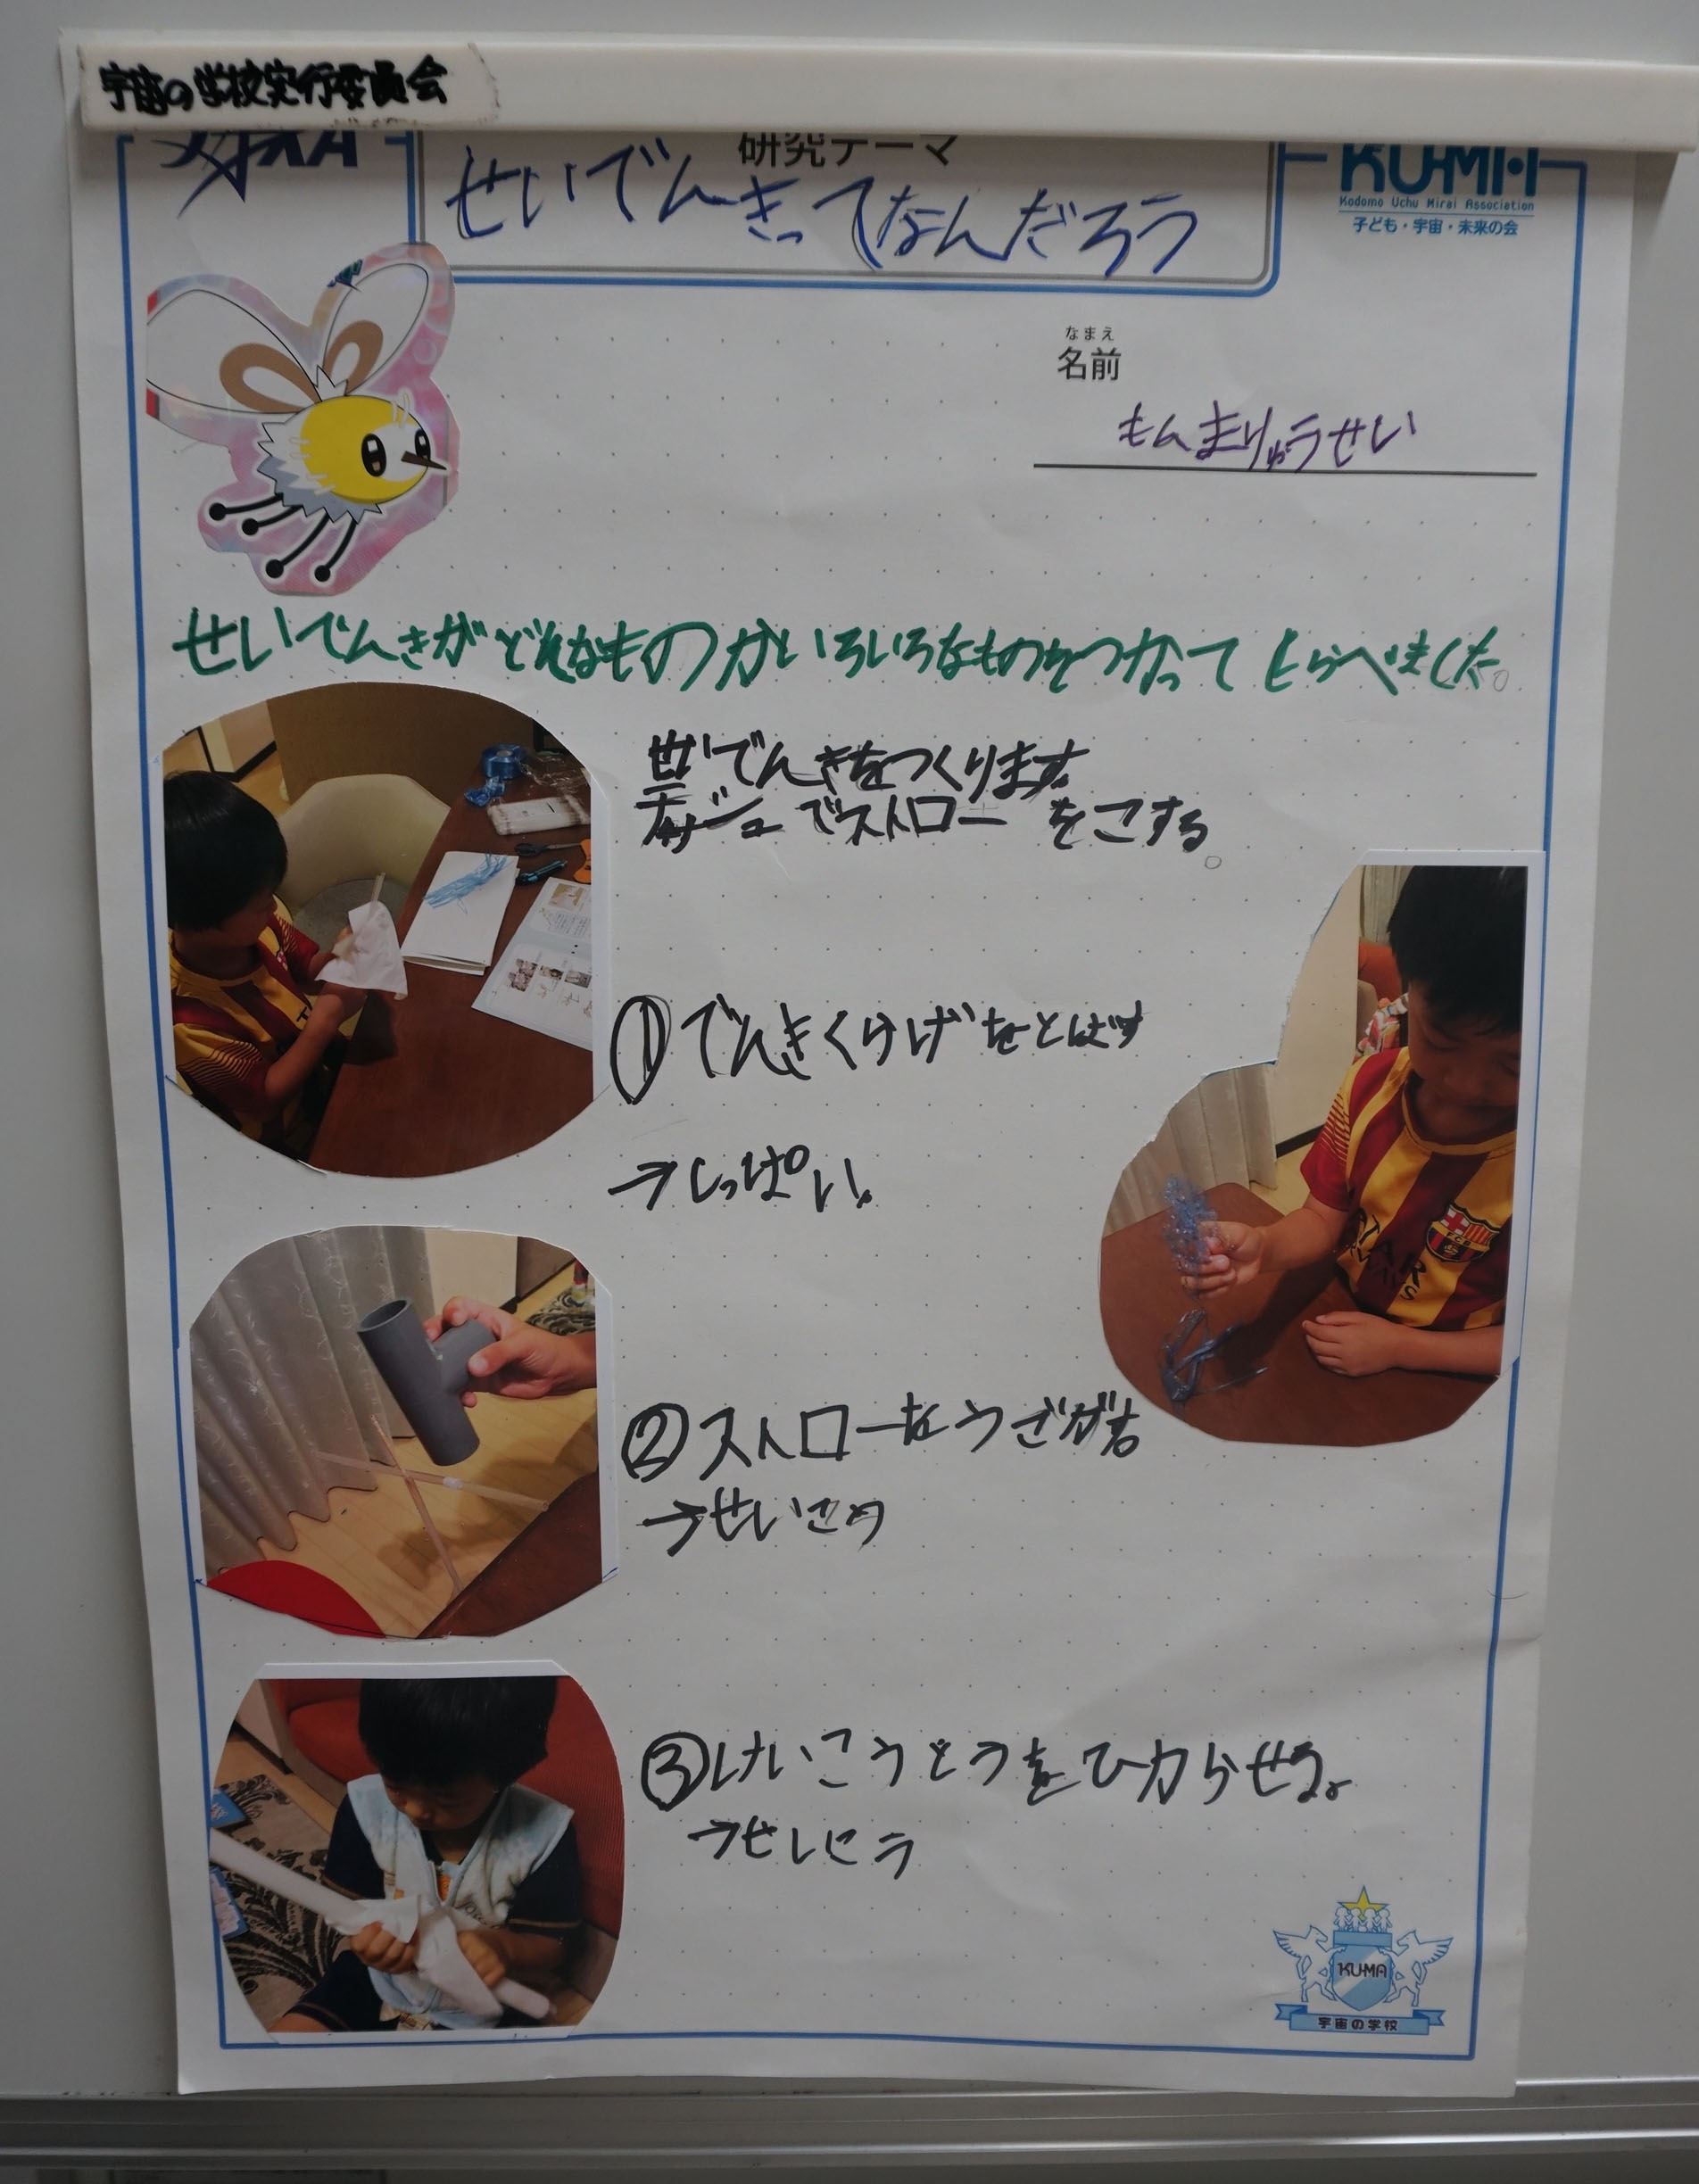 宇宙の学校実行委員会
研究テーマ
せいでんきってなんだろう
KU-MA
Kodomo Uchu Mirai Association
子ども・宇宙・未来の会
なまえ
名前
もんまりゅうせい
せいでんきがどんなものかいろいろなものをつかってしらべました。
せいでんきをつくります
でストローをこする。
①でんきくらげをとばす
→しっぱい。
②ストローをうごかす
→せいこう
③けいこうとうをひからせる。
→せいこう
KU-MA
宇宙の学校